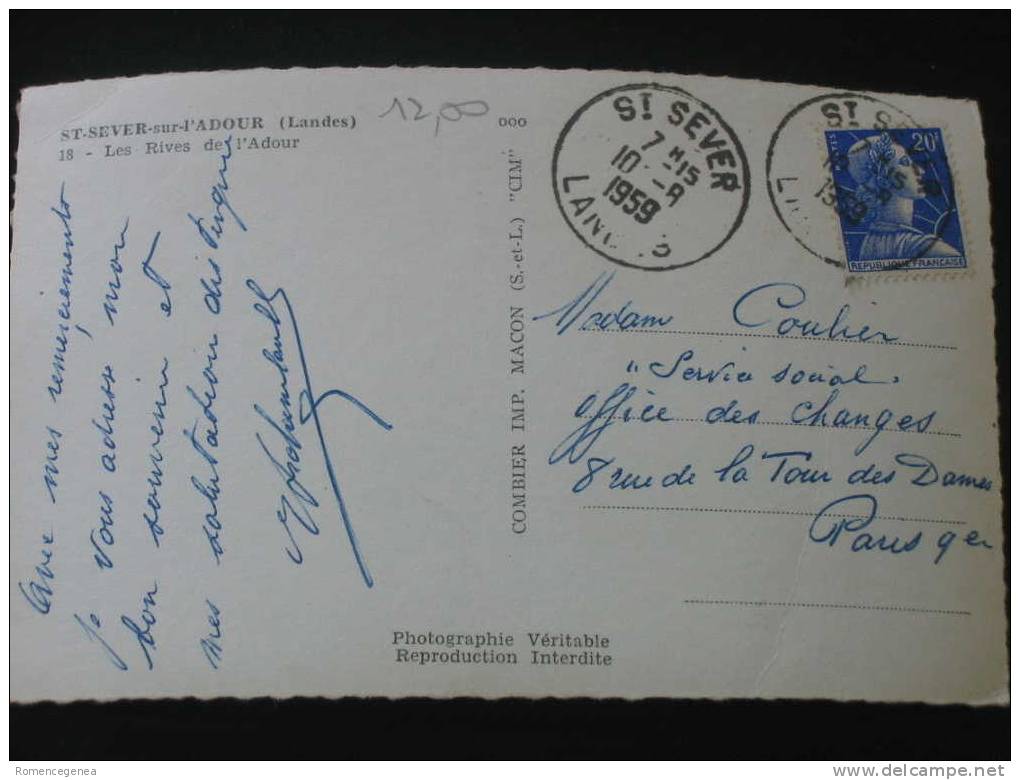 ST-SEVER-sur-l'ADOUR (Landes)
18 - Les Rives de l'Adour
12,00
ooo
Avec mes remerciements
je vous adresse mon
bon souvenir et
mes salutations distinguées
COMBIER IMP. MACON (S.-et-L.) "CIM"
ST SEVER
7 H 15
10 - 8
1959
LANDES
ST SEVER
1959
POSTES
20F
REPUBLIQUE FRANÇAISE
Madame Coulier
"Service social"
Office des Changes
8 rue de la Tour des Dames
Paris 9er
Photographie Véritable
Reproduction Interdite
Romencegenea
delcampe.net